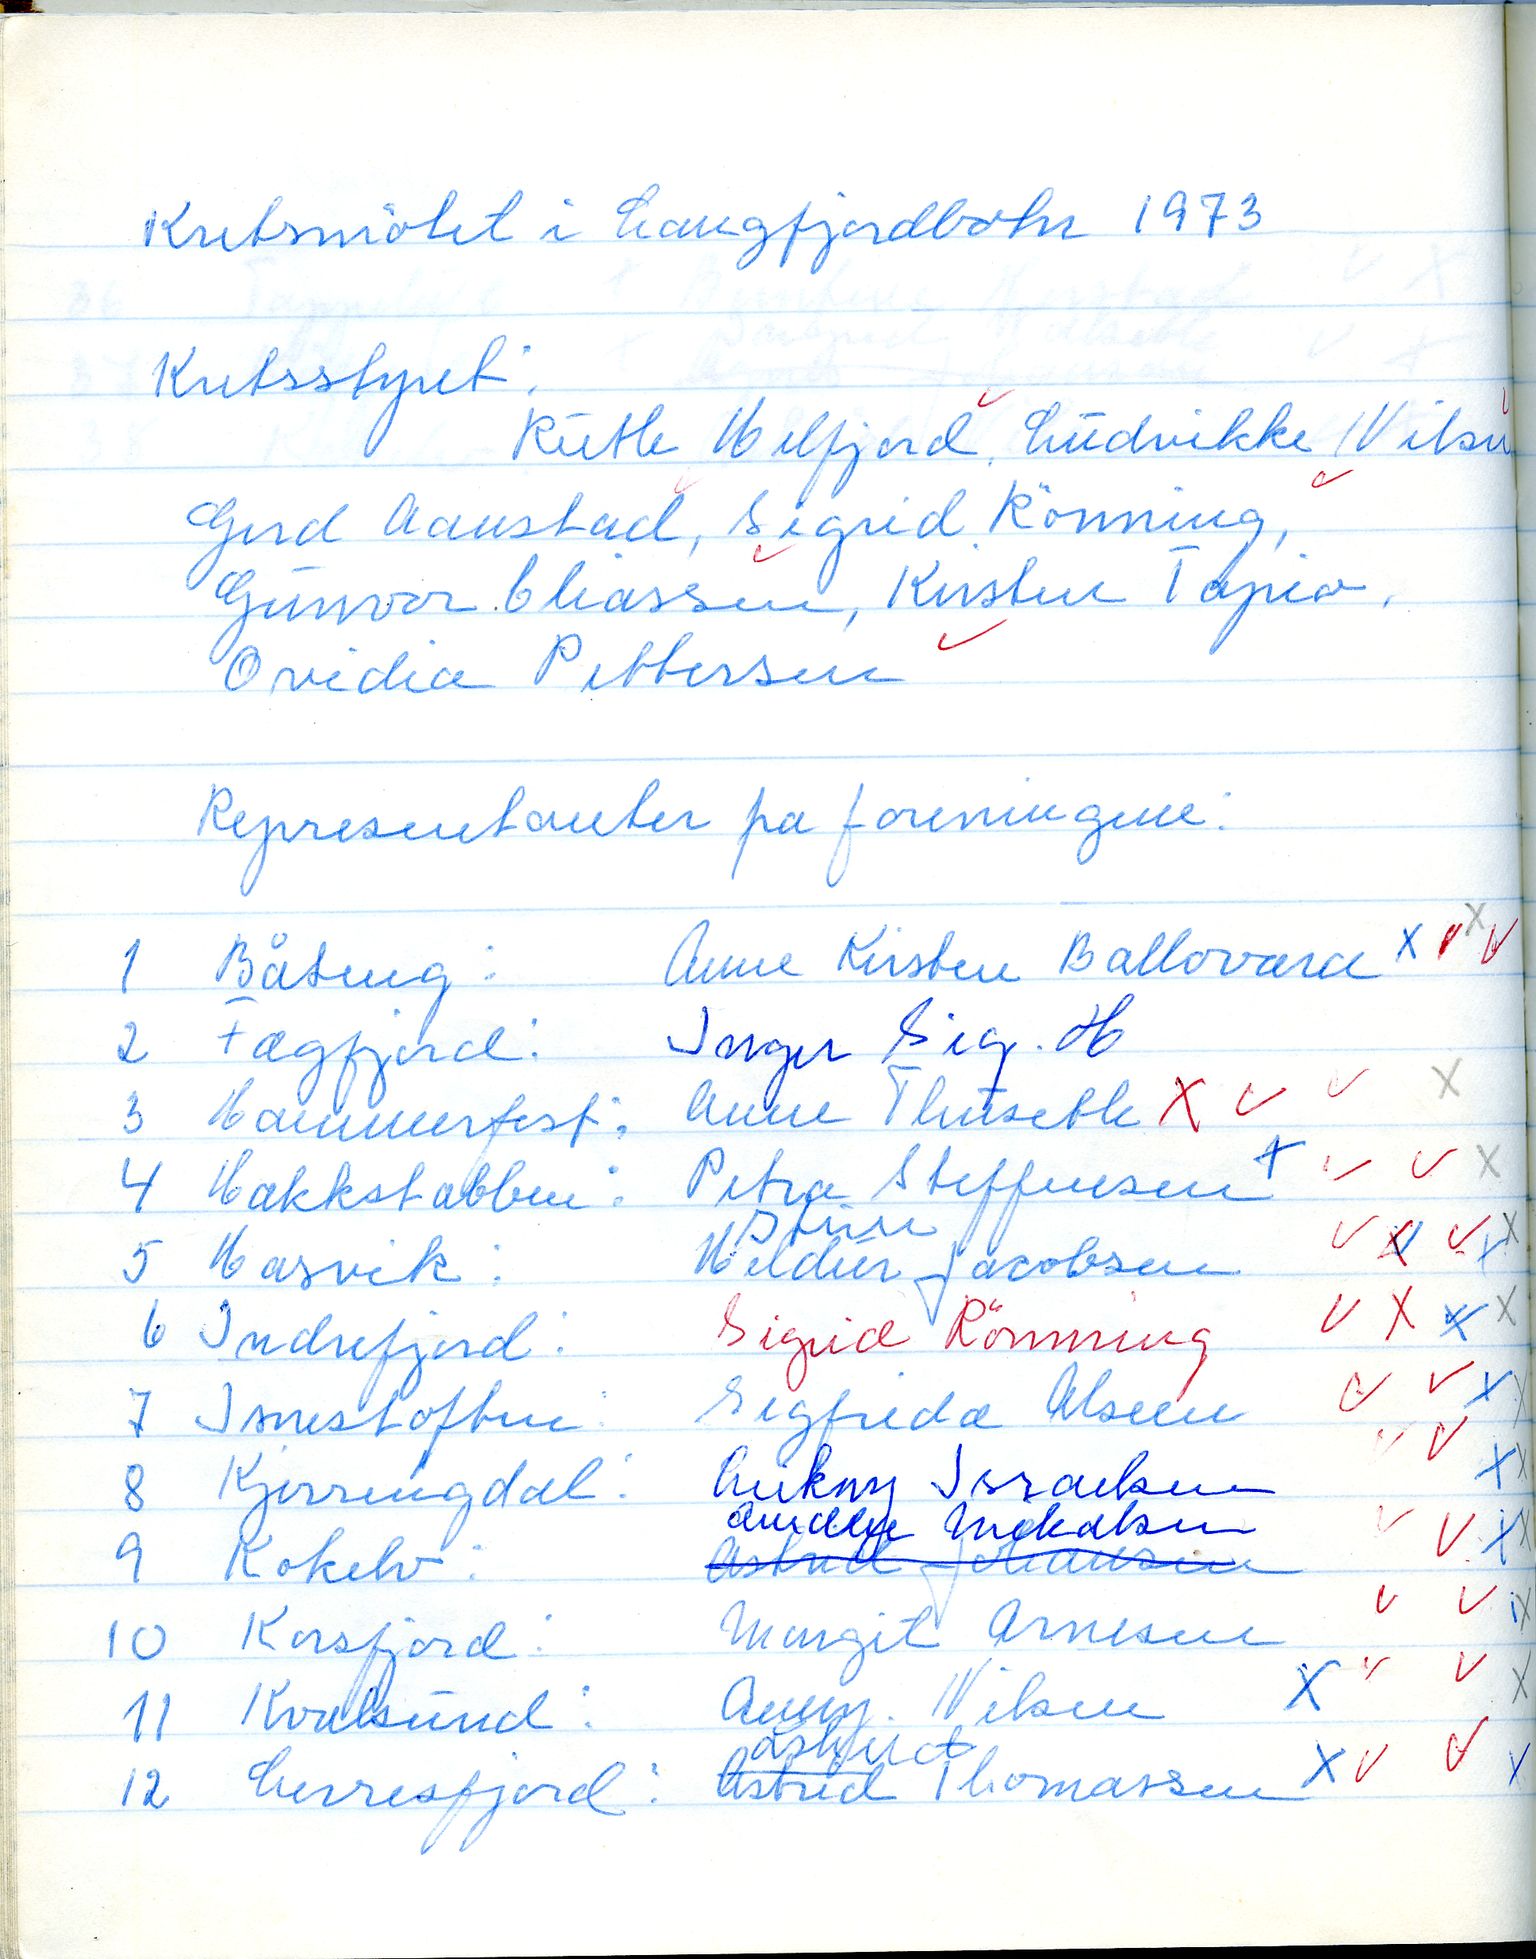 Kretsmötet i Langfjordbotn 1973
Kretsstyret:
Ruth Melfjord, Ludvikke Nilsen
Gerd Aanstad, Sigrid Rönning,
Gunvor Eliassen, Kirsten Tapio,
Ovidia Pettersen
Representanter på foreningene:
1 Båteng: Anne Kirsten Ballovara x
2 Fægfjord: Inger Sig. H
3 Hammerfest: Anne Thuseth X
4 Hakkstabben: Petra Steffensen
5 Hasvik: Hildur Jacobsen
6 Indrefjord: Sigrid Rönning
7 Isnestoften: Sigfrida Olsen
8 Kjerringdal: Israelsen
Mikalsen
9 Kokelv: Astrid Johansen
10 Korsfjord: Margit Arnesen
11 Kvalsund: Anny. Nilsen X
12 Lerresfjord: Astrid Thomassen X